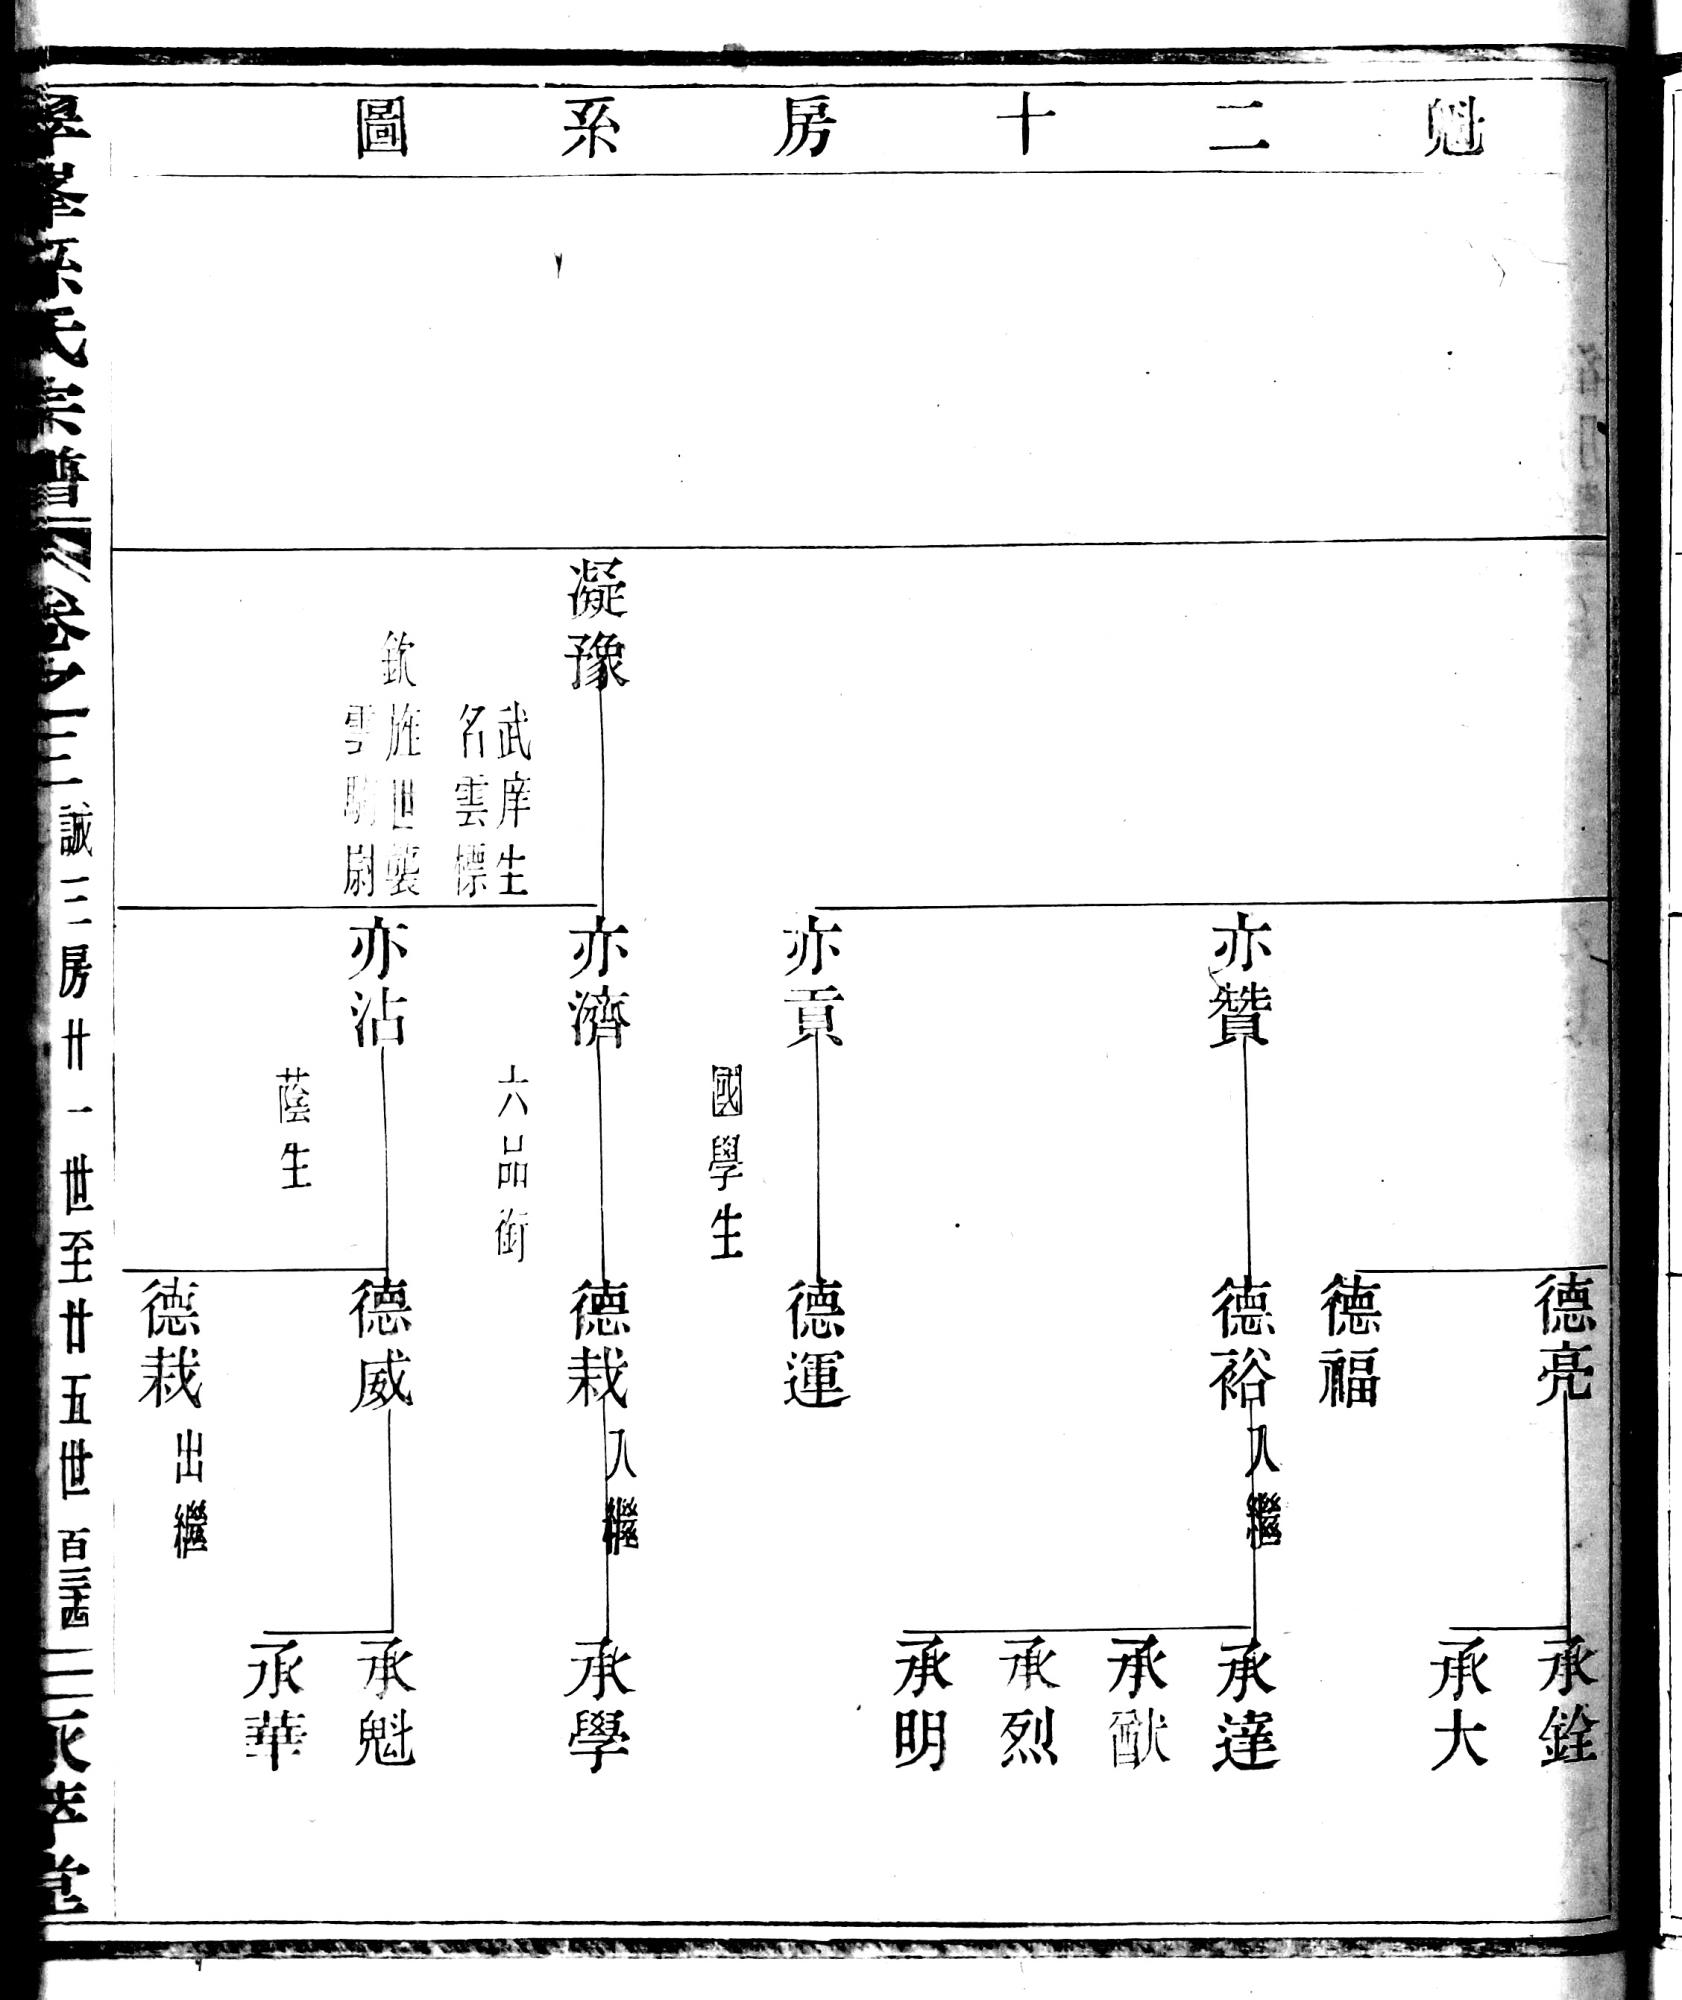 魁二十房系圖
凝豫
武庠生
名雲標
欽旌世襲
雲騎尉
亦贊
亦貢
國學生
亦濟
六品銜
亦沾
蔭生
德亮
德福
德裕
入繼
德運
德栽
入繼
德威
德栽
出繼
承銓
承大
承達
承猷
承烈
承明
承學
承魁
承華
孫氏宗譜
誠三房廿一世至廿五世